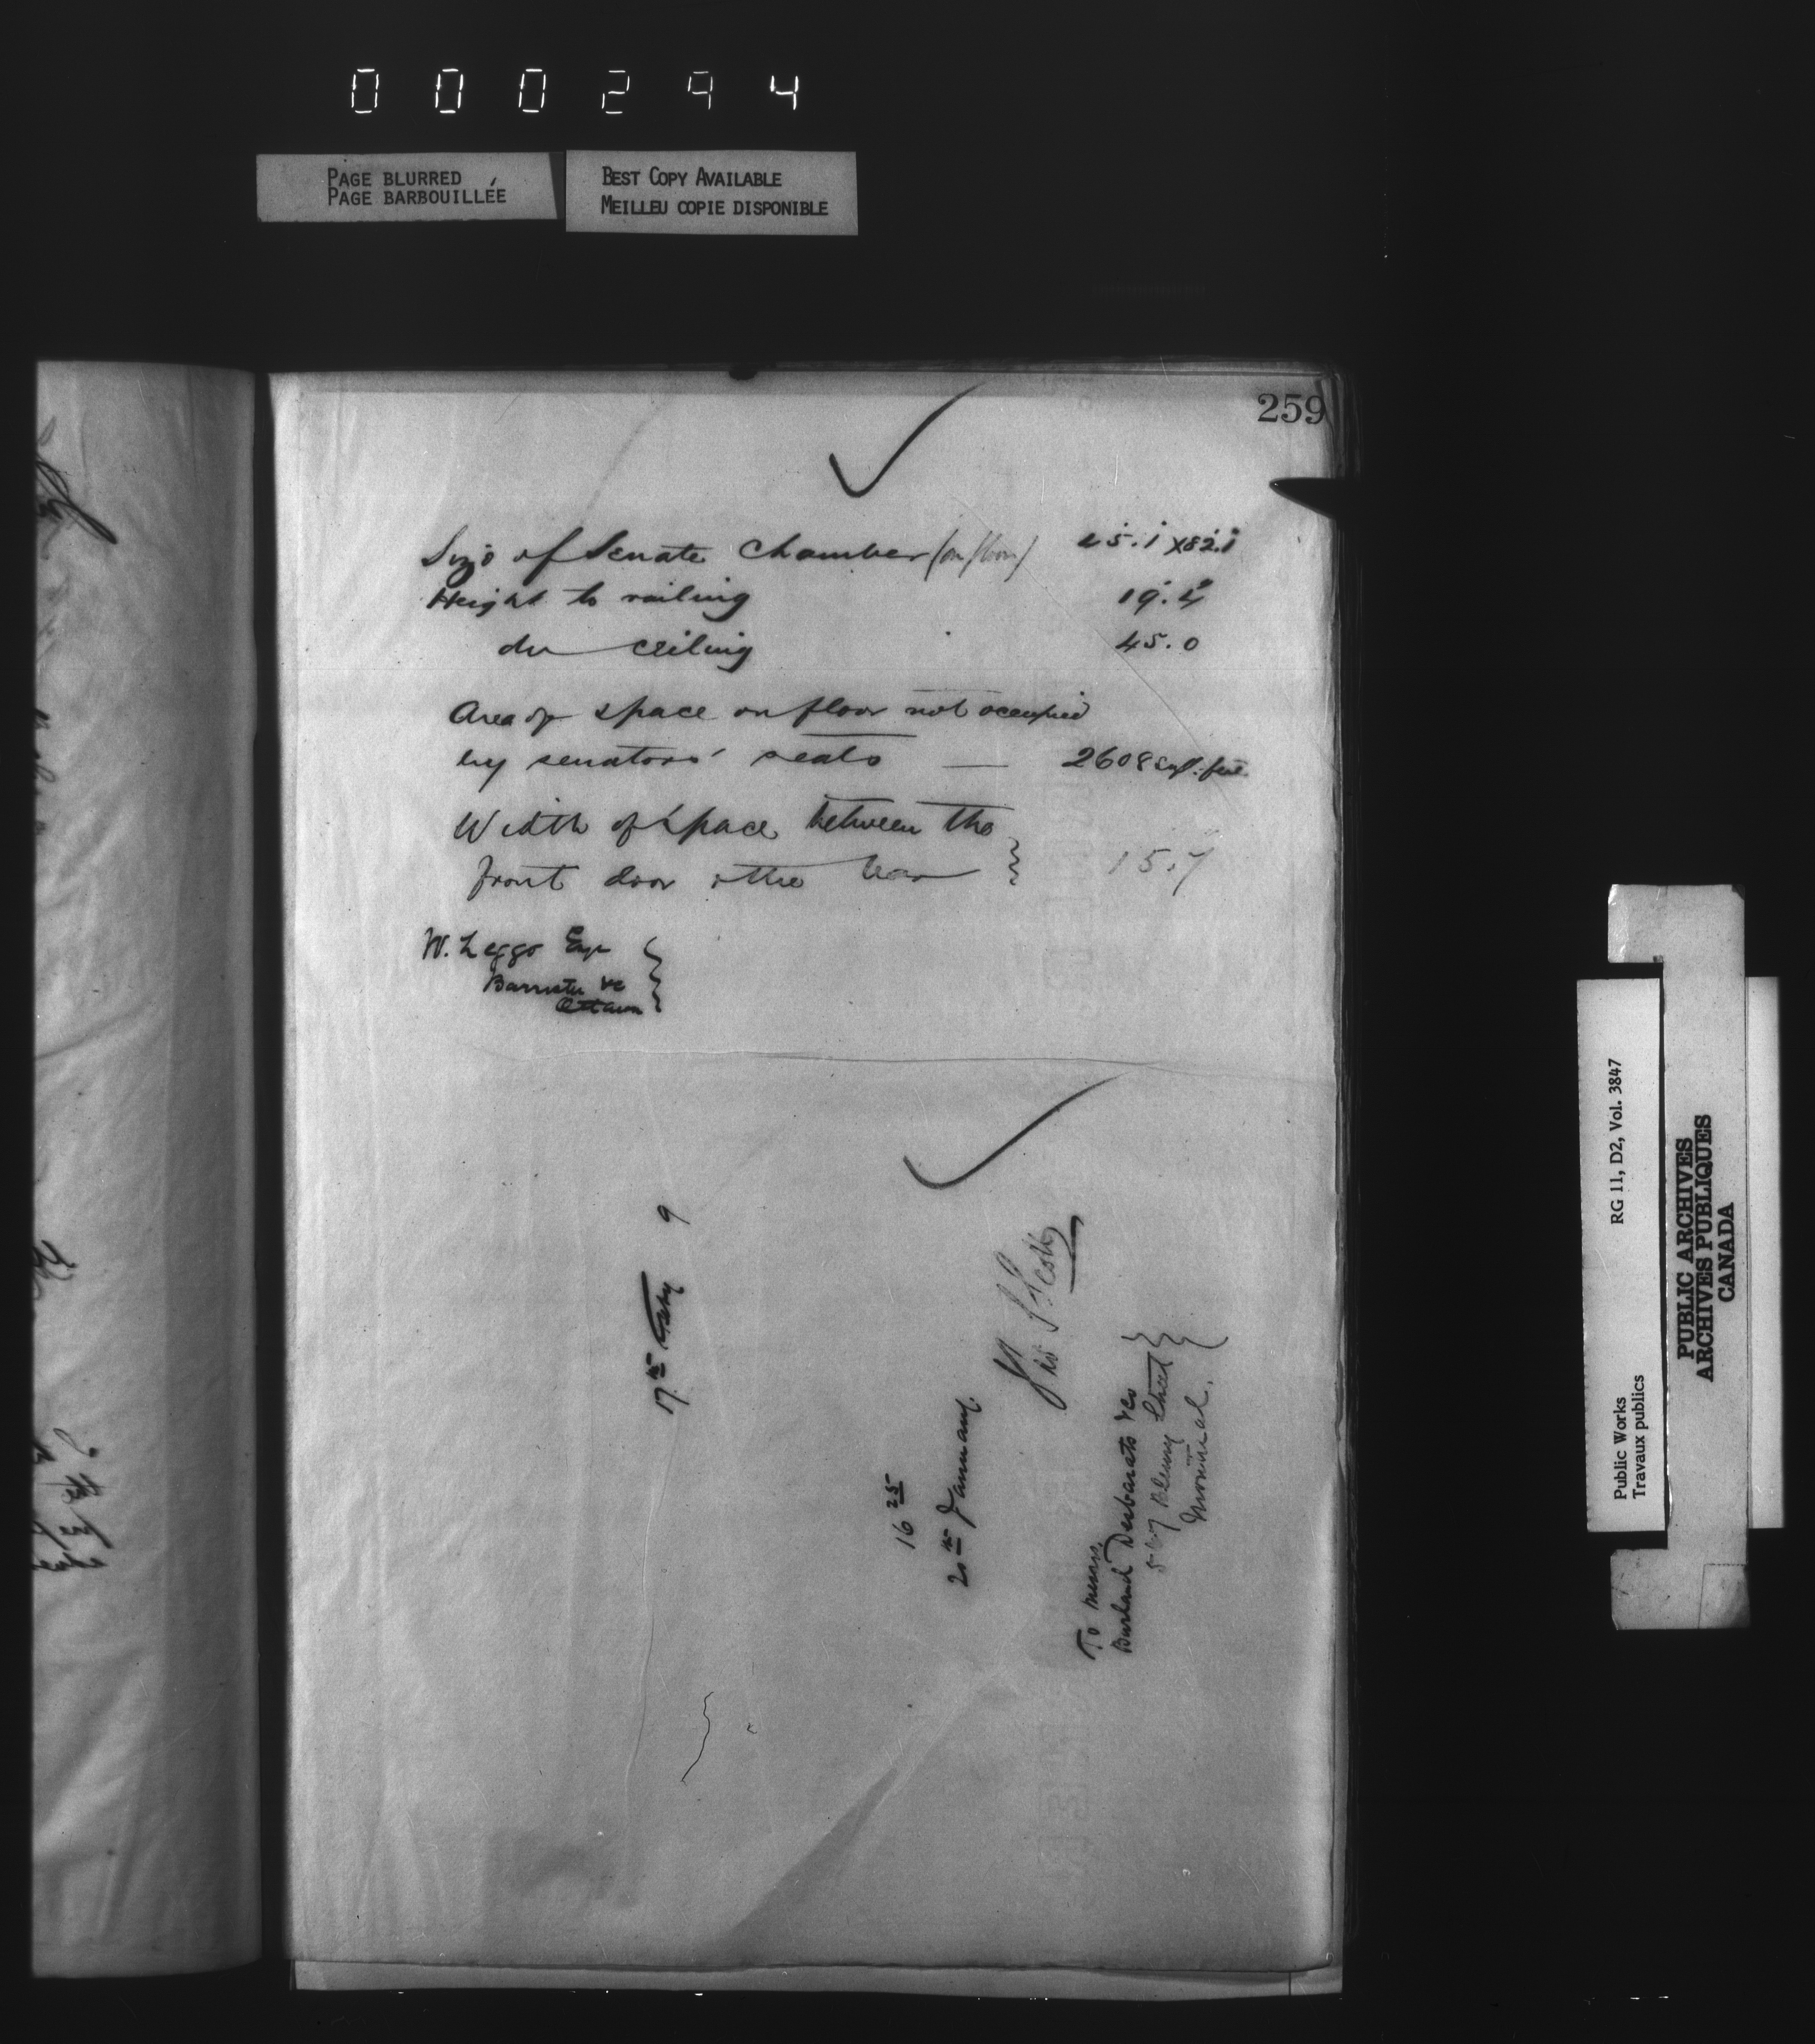 000294
PAGE BLURRED
PAGE BARBOUILLÉE
BEST COPY AVAILABLE
MEILLEU COPIE DISPONIBLE
259
Size of Senate Chamber (on floor) 25.1 x 82.1
Height to railing 19.
do ceiling 45.0
Area of space on floor not occupied
by senators' seats — 2608 supl. feet
Width of space between the
front door & the bar 15.7
W. Leggo Esqr
Barrister &c
Ottawa
17th Feby 9
16 25
20th January.
To Messrs.
Burland Desbarats & Co
Bleury Street
Montreal.
RG 11, D2, Vol. 3847
Public Works
Travaux publics
PUBLIC ARCHIVES
ARCHIVES PUBLIQUES
CANADA